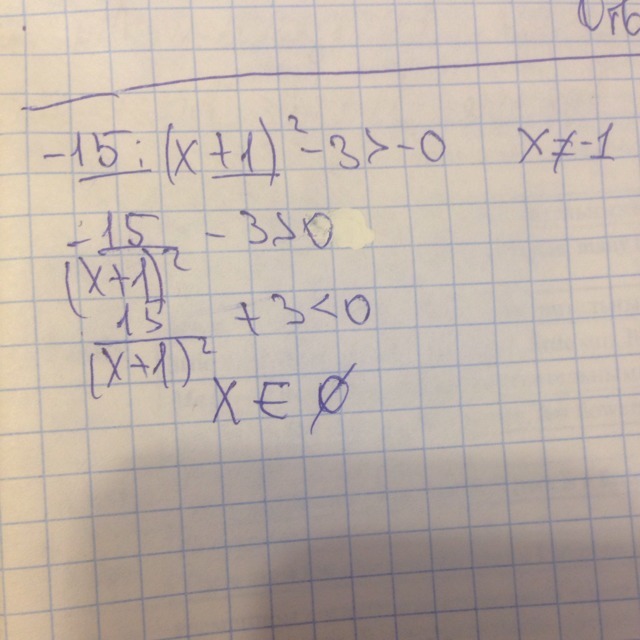 -15:(x+1)²-3>-0 x≠-1
-15/(x+1)² - 3>0
15/(x+1)² +3<0
x ∈ ∅